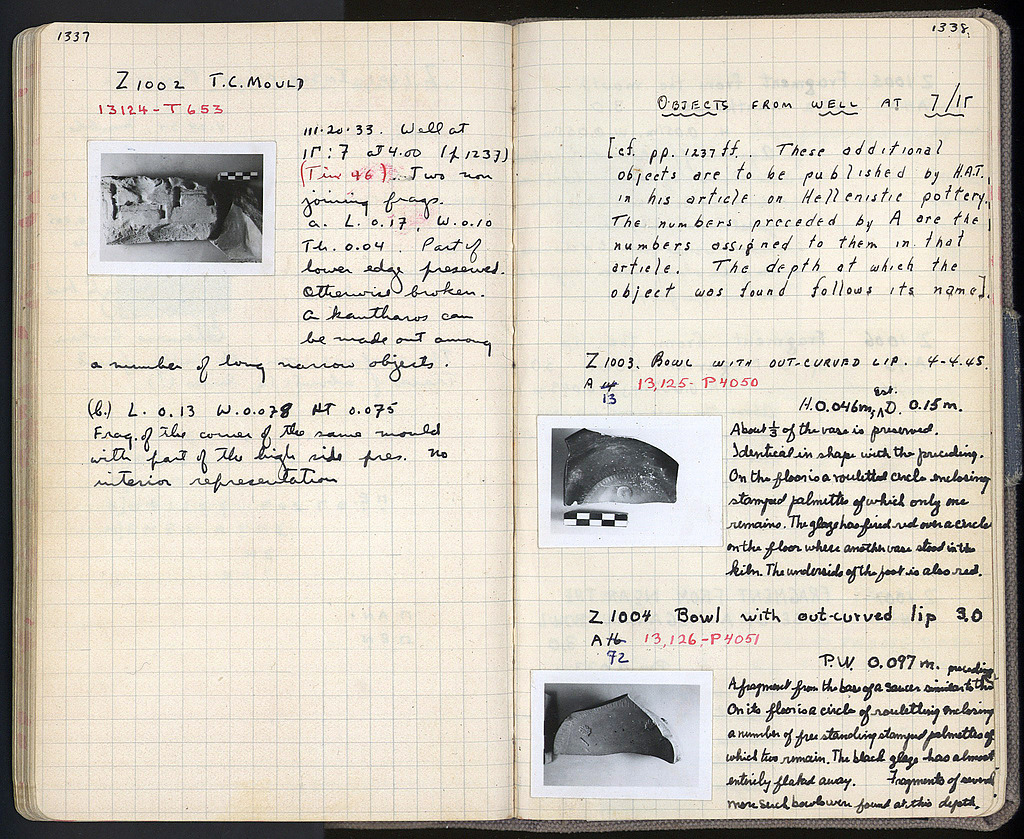 1337
Z 1002 T.C. MOULD
13124 - T 653
III·20·33. Well at
IΓ:7 at 4.00 (p 1237)
(Tin 46). Two non
joining frags.
a. L. 0.17, W. 0.10
Th. 0.04. Part of
lower edge preserved.
Otherwise broken.
A kantharos can
be made out among
a number of long narrow objects.
(b.) L. 0.13 W. 0.078 HT 0.075
Frag. of the corner of the same mould
with part of the high side pres. no
interior representation
1338
OBJECTS FROM WELL AT 7/IΓ
[cf. pp. 1237 ff. These additional
objects are to be published by H.A.T.
in his article on Hellenistic pottery.
The numbers preceded by A are the
numbers assigned to them in that
article. The depth at which the
object was found follows its name].
Z 1003. BOWL WITH OUT-CURVED LIP. 4-4.45.
A 13,125 - P4050
13
H. 0.046m; Est. D. 0.15 m.
About ⅓ of the vase is preserved.
Identical in shape with the preceding.
On the floor is a rouletted circle enclosing
stamped palmettes of which only one
remains. The glaze has fired red over a circle
on the floor where another vase stood in the
kiln. The underside of the foot is also red.
Z 1004 Bowl with out-curved lip 3.0
A 16 13,126 - P4051
72
P.W. 0.097 m.
A fragment from the base of a saucer similar to the preceding
On its floor is a circle of rouletting enclosing
a number of free standing stamped palmettes of
which two remain. The black glaze has almost
entirely flaked away. Fragments of several
more such bowls were found at this depth.